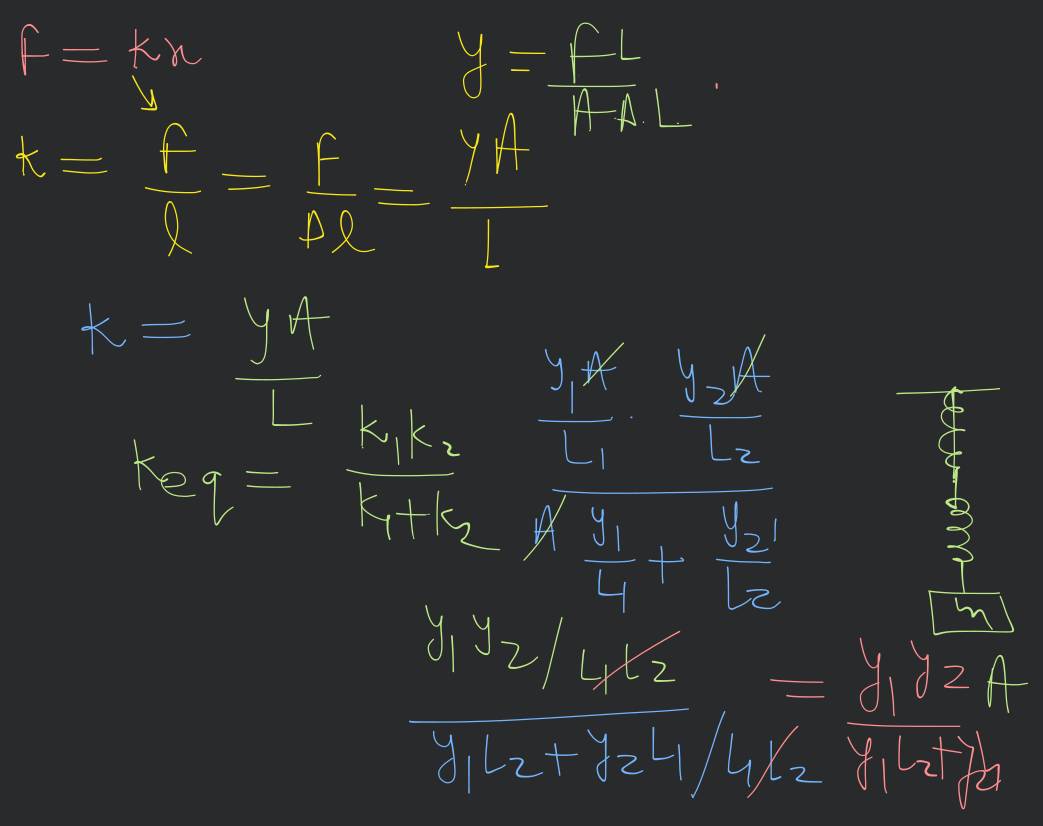 f = kx
y = fL / A Δ.L
k = f / l = F / Δl = yA / L
k = yA / L
keq = k₁k₂ / k₁+k₂
y₁A / L₁ . y₂A / L₂
A y₁ / L₁ + y₂ / L₂
m
y₁y₂ / L₁L₂
y₁L₂ + y₂L₁ / L₁L₂
= y₁y₂ A / y₁L₂ + y₂L₁